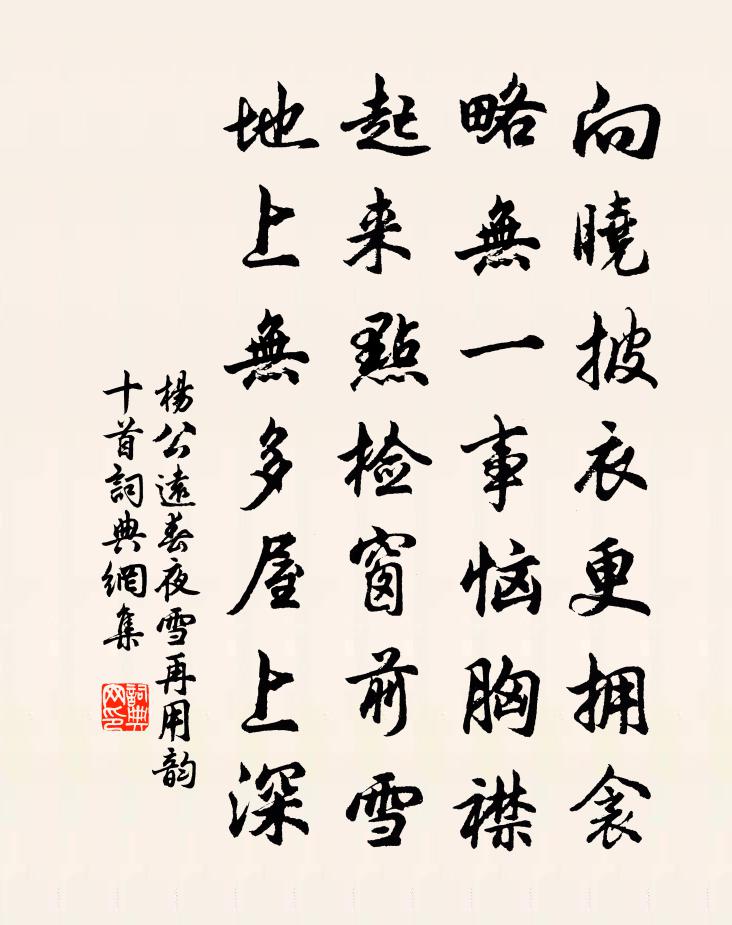 向曉披衣更拥衾
略無一事恼胸襟
起来點检窗前雪
地上無多屋上深
楊公遠春夜雪再用韵
十首詞典網集
詞典
网印